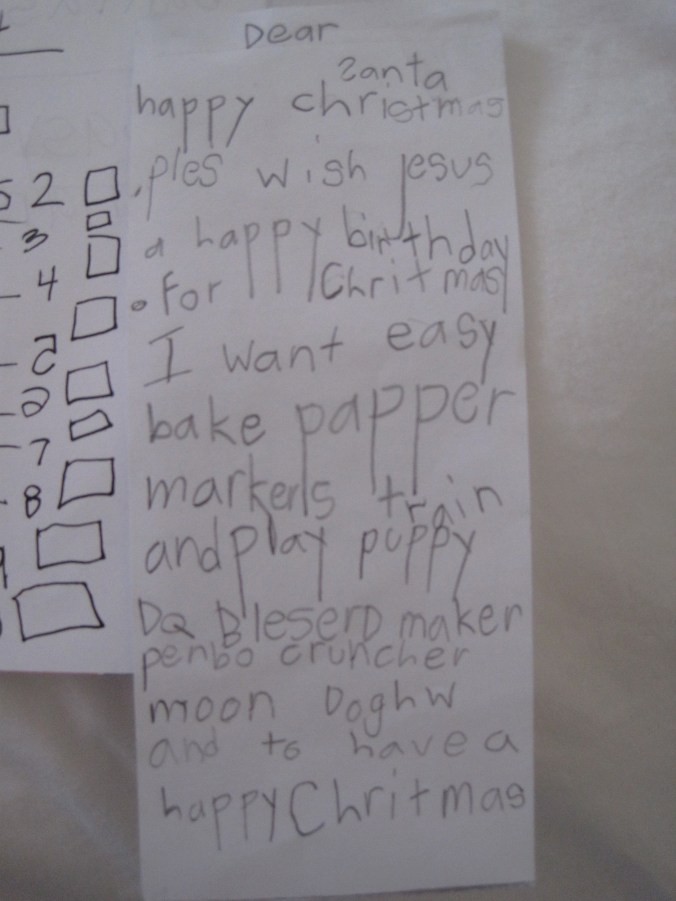 Dear
Santa
happy christmas
.ples wish jesus
a happy birthday
.For Chritmas
I want easy
bake papper
markerls train
and play puppy
DQ Bleserd maker
penbo cruncher
moon Doghw
and to have a
happy Chritmas
2
3
4
7
8